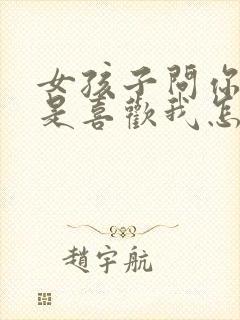 女孩子問你
是喜歡我怎
趙宇航